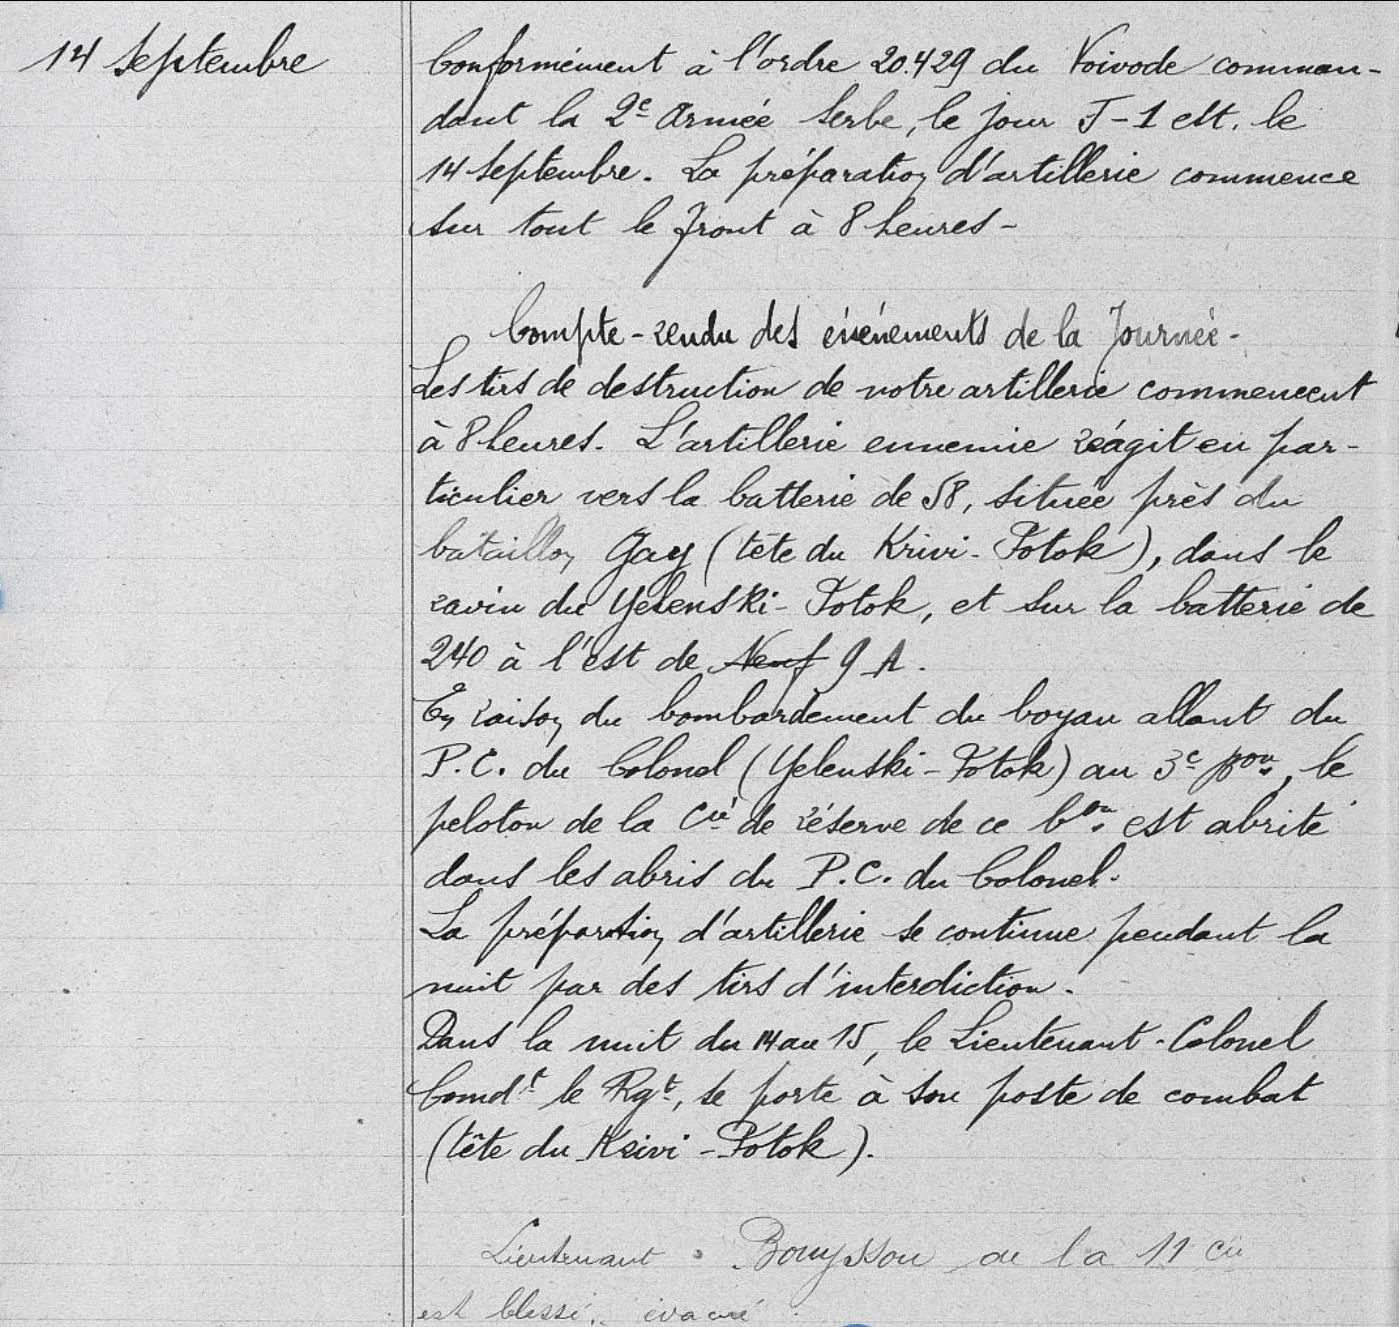 14 Septembre
Conformément à l'ordre 20.429 du Voivode comman-
dant la 2e Armée Serbe, le jour J-1 est le
14 Septembre. La préparation d'artillerie commence
sur tout le front à 8 heures-
Compte-rendu des événements de la Journée-
Les tirs de destruction de notre artillerie commencent
à 8 heures. L'artillerie ennemie réagit en par-
ticulier vers la batterie de 58, située près du
bataillon Gay (tête du Krivi-Potok), dans le
ravin du Yelenski-Potok, et sur la batterie de
240 à l'est de Neuf 9 A.
En raison du bombardement du boyau allant du
P.C. du Colonel (Yelenski-Potok) au 3e bon, le
peloton de la Cie de réserve de ce bon est abrité
dans les abris du P.C. du Colonel.
La préparation d'artillerie se continue pendant la
nuit par des tirs d'interdiction.
Dans la nuit du 14 au 15, le Lieutenant-Colonel
Comdt le Rgt, se porte à son poste de combat
(tête du Krivi-Potok).
Lieutenant Bouysson de la 11 Cie
est blessé, évacué